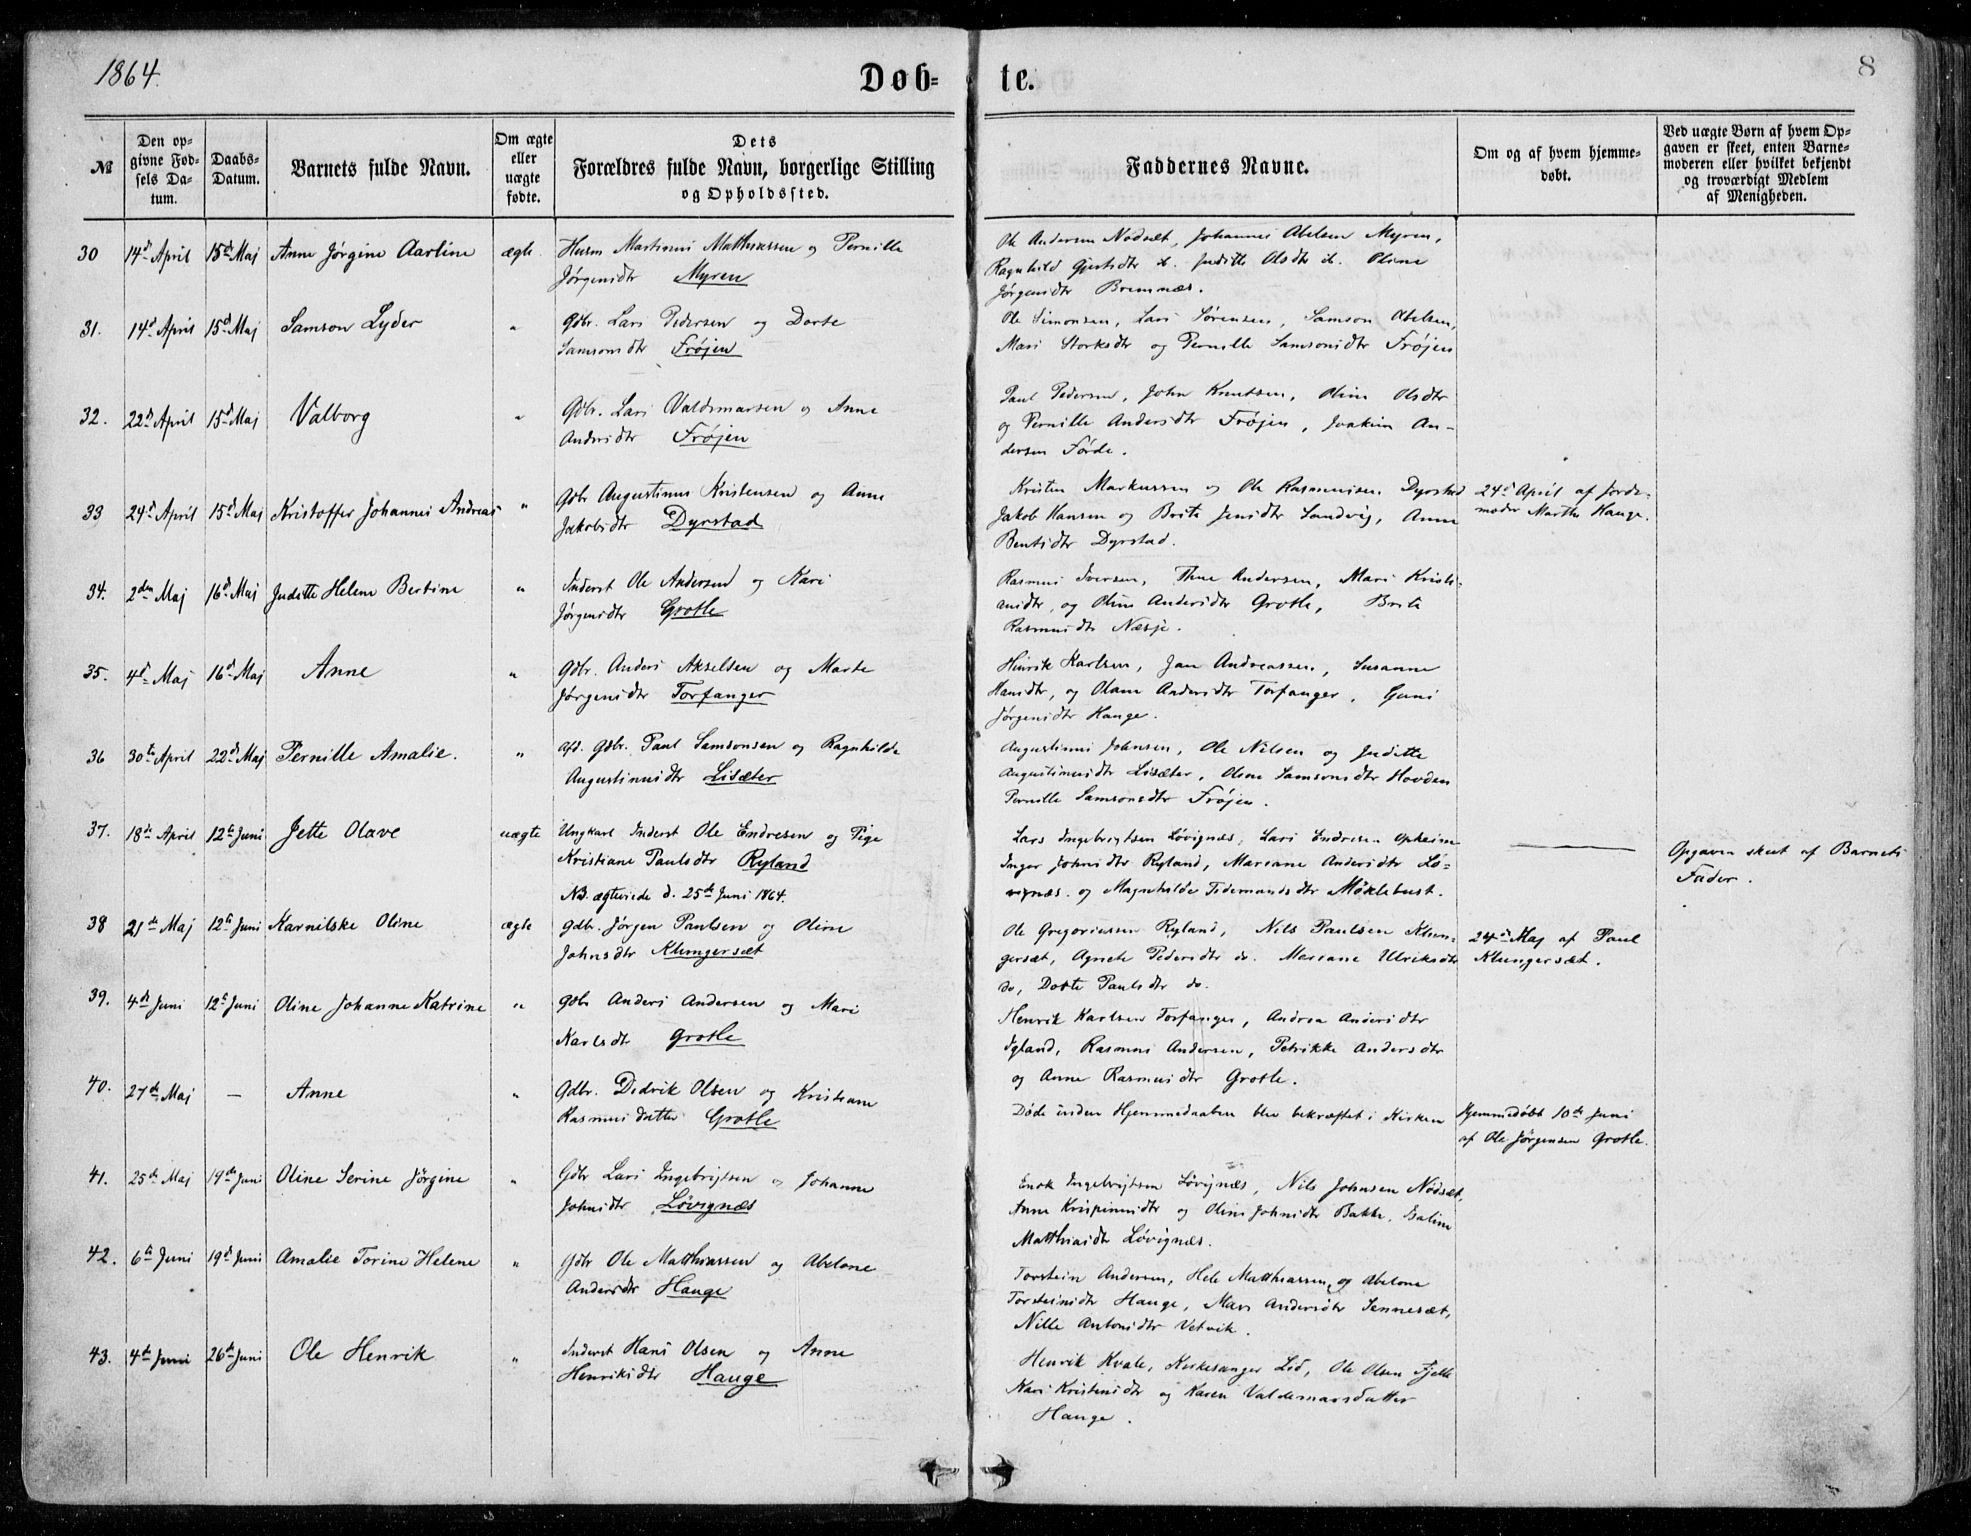 1864.
Døb-
te.
8
№
Den op-
givne Fød-
sels Da-
tum.
Daabs-
Datum.
Barnets fulde Navn.
Om ægte
eller
uægte
fødte.
Dets
Forældres fulde Navn, borgerlige Stilling
og Opholdssted.
Faddernes Navne.
Om og af hvem hjemme-
døbt.
Ved uægte Børn af hvem Op-
gaven er skeet, enten Barne-
moderen eller hvilket bekjendt
og troværdigt Medlem
af Menigheden.
30 14d April 15d Maj Anne Jørgine Aartine ægte. Husm Martinus Matthiassen og Pernille
Jørgensdtr Myren
Ole Andersen Nødsæt, Johannes Abelsen Myren,
Ragnhild Gjertsdtr d. Juditte Olsdtr d. Oline
Jørgensdtr Bremnæs.
31. 14d April 15d Maj Samson Lyder " Gdbr. Lars Pedersen og Dorte
Samsonsdtr Frøjen
Ole Simonsen, Lars Sørensen, Samson Abelsen,
Mari Storksdtr og Pernille Samsonsdtr Frøjen
32. 22d April 15d Maj Valborg " Gdbr. Lars Valdemarsen og Anne
Andersdtr Frøjen
Paul Pedersen, John Knutsen, Oline Olsdtr
og Pernille Andersdtr Frøjen, Joakim An-
dersen Førde.
33 24d April 15d Maj Kristoffer Johannes Andreas " Gdbr Augustinus Kristensen og Anne
Jakobsdtr Dyrstad
Kristen Markussen og Ole Rasmussen Dyrstad
Jakob Hansen og Brite Jensdtr Sandvig, Anne
Bentsdtr Dyrstad.
24d April af Jorde-
moder Marthe Hauge.
34. 2den Maj 16d Maj Juditte Helene Bertine " Inderst Ole Andersen og Kari
Jørgensdtr Grotle
Rasmus Iversen, Thue Andersen, Mari Kristi-
ansdtr, og Oline Andersdtr Grotle, Brite
Rasmusdtr Næsje.
35. 4d Maj 16d Maj Anne " Gdbr. Anders Akselsen og Marte
Jørgensdtr Torfanger
Henrik Karlsen, Jan Andreassen, Susanne
Hansdtr, og Olave Andersdtr Torfanger, Guni
Jørgensdtr Hauge.
36 30te April 22d Maj Pernille Amalie. " afd. Gdbr. Paul Samsonsen og Ragnhilde
Augustinusdtr Lisæter
Augustinus Johnsen, Ole Nilsen og Juditte
Augustinusdtr Lisæter, Oline Samsonsdtr Hovden
Pernille Samsonsdtr Frøjen.
37. 18de April 12te Juni Jette Olave uægte Ungkarl Inderst Ole Endresen og Pige
Kristiane Paulsdtr Ryland
NB. ægteviede d. 25de Juni 1864.
Lars Ingebrigtsen Løvignæs, Lars Endresen Opheim
Inger Johnsdtr Ryland, Mariane Andersdtr Lø-
vignæs. og Magnhilde Tidemandsdtr Møklebust.
Opgaven skeet af Barnets
Fader.
38 21de Maj 12te Juni Karnilske Oline ægte Gdbr. Jørgen Paulsen og Oline
Johnsdtr Klungersæt
Ole Gregoriussen Ryland, Nils Paulsen Klun-
gersæt, Agnete Pedersdtr do. Mariane Ulriksdtr
do, Dorte Paulsdtr do.
24d Maj af Paul
Klungersæt.
39. 4de Juni 12te Juni Oline Johanne Katrine " Gdbr Anders Andersen og Mari
Karlsdtr Grotle
Henrik Karlsen Torfanger, Andrea Andersdtr
Igland, Rasmus Andersen, Petrikke Andersdtr
og Anne Rasmusdtr Grotle.
40. 27de Maj — Anne " Gdbr. Didrik Olsen og Kristiane
Rasmusdatter Grotle
Døde inden Hjemmedaaben blev bekræftet i Kirken
Hjemmedøbt 10de Juni
af Ole Jørgensen Grotle.
41. 25de Maj 19de Juni Oline Serine Jørgine " Gdbr Lars Ingebrigtsen og Johanne
Johnsdtr Løvignæs
Enok Ingebrigtsen Løvignæs, Nils Johnsen Nødsæt,
Anne Krispinusdtr og Oline Johnsdtr Bakke, Esaline
Matthiasdtr Løvignæs.
42. 6te Juni 19d Juni Amalie Torine Helene " Gdbr Ole Matthiassen og Abelone
Andersdtr Hauge
Torstein Andersen, Hele Matthiassen, og Abelone
Torsteinsdtr Hauge, Mari Andersdtr Sennesæt,
Nille Antonsdtr Vetvik.
43. 4de Juni 26de Juni Ole Henrik " Inderst Hans Olsen og Anne
Henriksdtr Hauge
Henrik Kvale, Kirkesanger Lid, Ole Olsen Fjelle
Kari Kristensdtr og Karen Valdemarsdatter
Hauge.